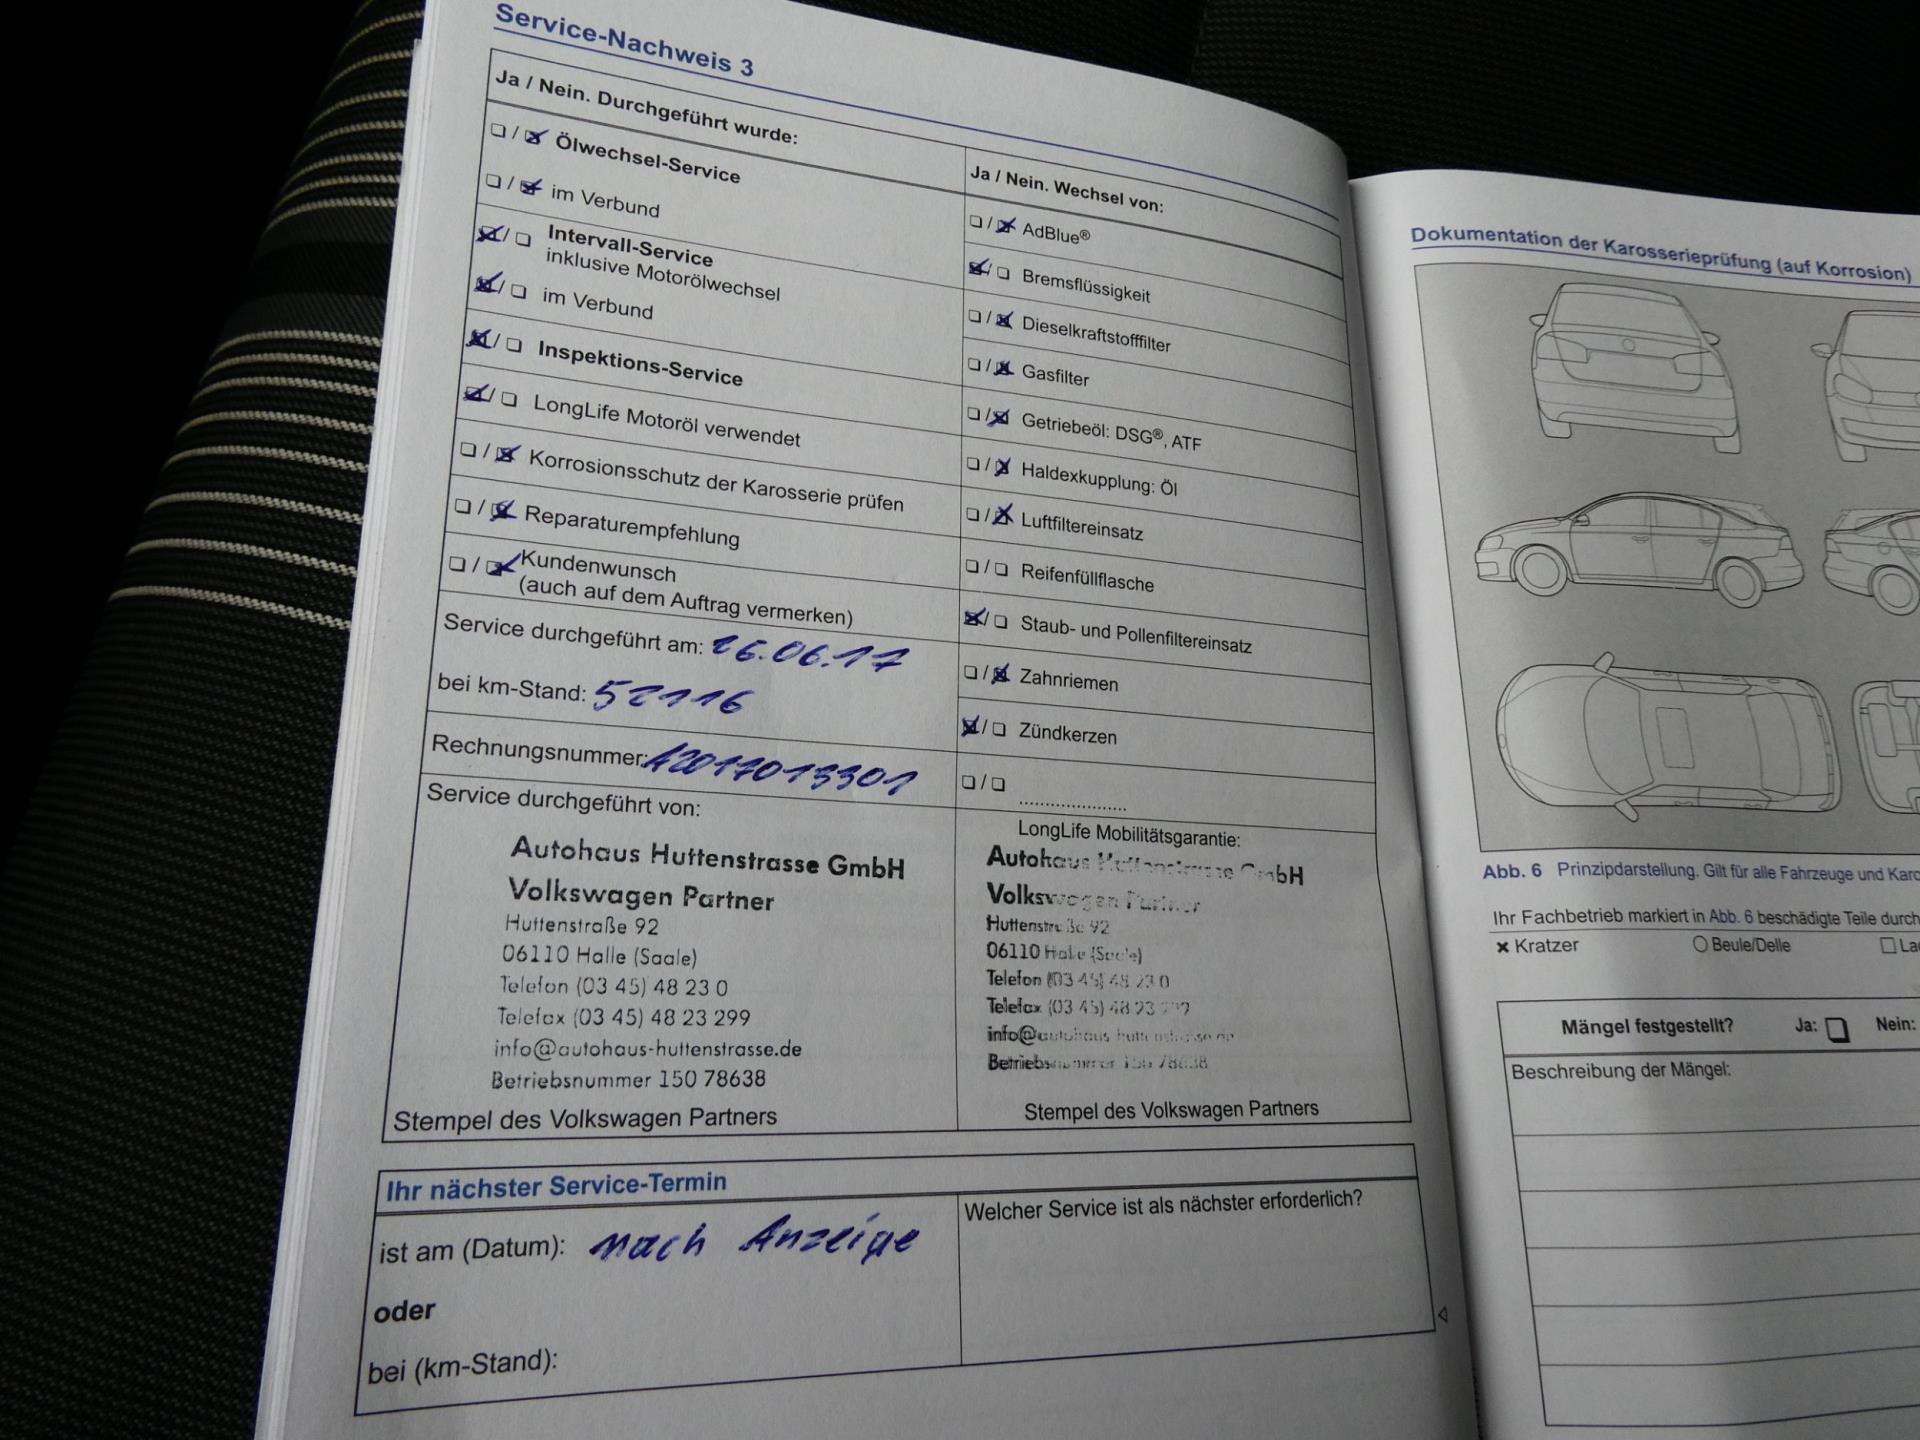 Service-Nachweis 3
Ja / Nein. Durchgeführt wurde:
❏ / ❏ Ölwechsel-Service
❏ / ❏ im Verbund
❏ / ❏ Intervall-Service
inklusive Motorölwechsel
❏ / ❏ im Verbund
❏ / ❏ Inspektions-Service
❏ / ❏ LongLife Motoröl verwendet
❏ / ❏ Korrosionsschutz der Karosserie prüfen
❏ / ❏ Reparaturempfehlung
❏ / ❏ Kundenwunsch
(auch auf dem Auftrag vermerken)
Service durchgeführt am: 26.06.17
bei km-Stand: 52116
Rechnungsnummer: 12017013301
Service durchgeführt von:
Autohaus Huttenstrasse GmbH
Volkswagen Partner
Huttenstraße 92
06110 Halle (Saale)
Telefon (03 45) 48 23 0
Telefax (03 45) 48 23 299
info@autohaus-huttenstrasse.de
Betriebsnummer 150 78638
Stempel des Volkswagen Partners
Ja / Nein. Wechsel von:
❏ / ❏ AdBlue®
❏ / ❏ Bremsflüssigkeit
❏ / ❏ Dieselkraftstofffilter
❏ / ❏ Gasfilter
❏ / ❏ Getriebeöl: DSG®, ATF
❏ / ❏ Haldexkupplung: Öl
❏ / ❏ Luftfiltereinsatz
❏ / ❏ Reifenfüllflasche
❏ / ❏ Staub- und Pollenfiltereinsatz
❏ / ❏ Zahnriemen
❏ / ❏ Zündkerzen
❏ / ❏ .....................
LongLife Mobilitätsgarantie:
Autohaus Huttenstrasse GmbH
Volkswagen Partner
Huttenstraße 92
06110 Halle (Saale)
Telefon (03 45) 48 23 0
Telefax (03 45) 48 23 299
info@autohaus-huttenstrasse.de
Betriebsnummer 150 78638
Stempel des Volkswagen Partners
Ihr nächster Service-Termin
ist am (Datum): nach Anzeige
oder
bei (km-Stand):
Welcher Service ist als nächster erforderlich?
Dokumentation der Karosserieprüfung (auf Korrosion)
Abb. 6 Prinzipdarstellung. Gilt für alle Fahrzeuge und
Ihr Fachbetrieb markiert in Abb. 6 beschädigte Teile durch
× Kratzer ○ Beule/Delle ❏
Mängel festgestellt? Ja: ❏ Nein:
Beschreibung der Mängel: